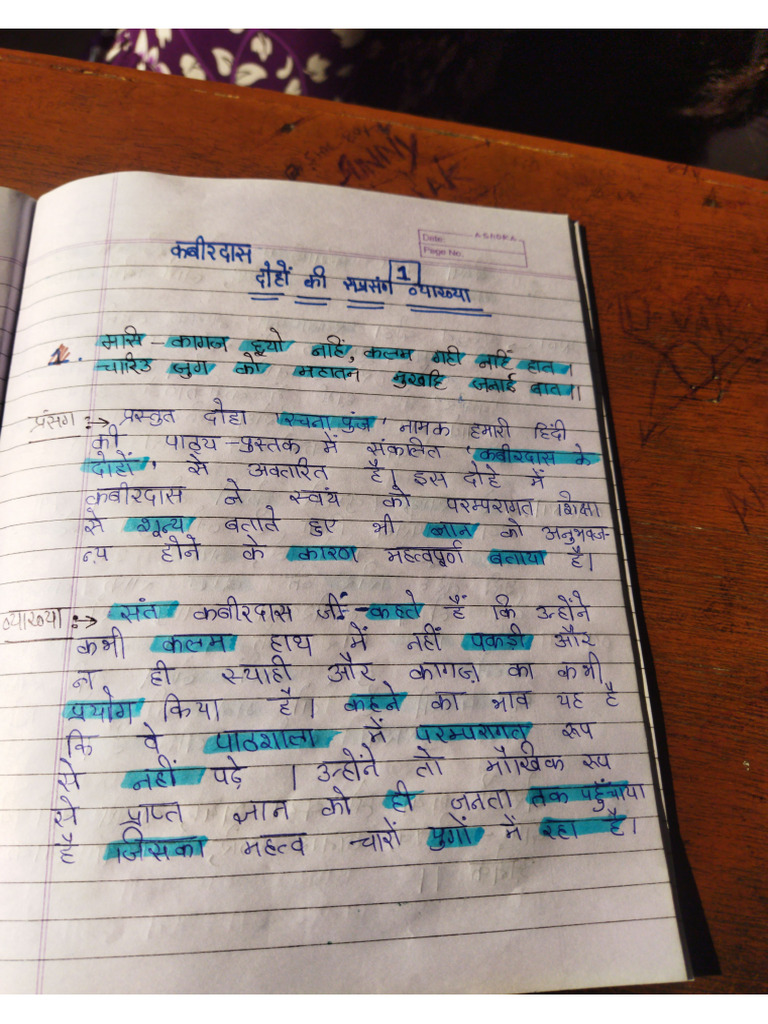 Date: ASADKA
Page No.
कबीरदास
1
दोहों की सप्रसंग व्याख्या
1. मासि - कागज छूयो नहिं, कलम गही नहिं हात।
चारिउ जुग को महातन मुखहि जनाई बात॥
प्रंसग :→ प्रस्तुत दोहा 'रचना पुंज' नामक हमारी हिंदी
की पाठ्य-पुस्तक में संकलित 'कबीरदास के
दोहों' से अवतारित है। इस दोहे में
कबीरदास ने स्वंय को परम्परागत शिक्षा
से शून्य बताते हुए भी ज्ञान को अनुभवज-
न्य होने के कारण महत्वपूर्ण बताया है।
व्याख्या :→ संत कबीरदास जी - कहते हैं कि उन्होंने
कभी कलम हाथ में नहीं पकड़ी और
न ही स्याही और कागज़ का कभी
प्रयोग किया है। कहने का भाव यह है
कि वे पाठशाला में परम्परागत रूप
से नहीं पढ़े । उन्होंने तो मौखिक रूप
से प्राप्त ज्ञान को ही जनता तक पहुँचाया
है जिसका महत्व चारों युगों में रहा है।